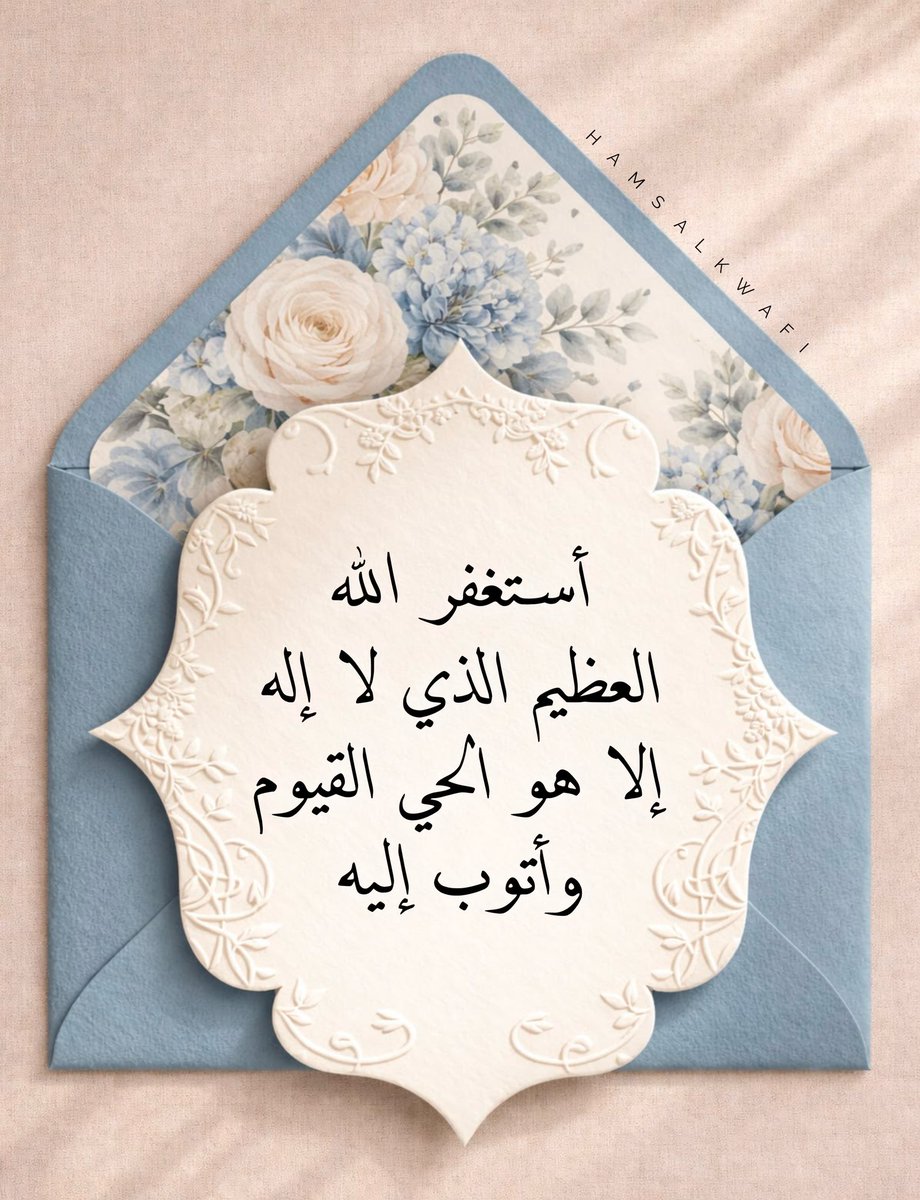 HAMSALKWAFI
أستغفر الله
العظيم الذي لا إله
إلا هو الحي القيوم
وأتوب إليه